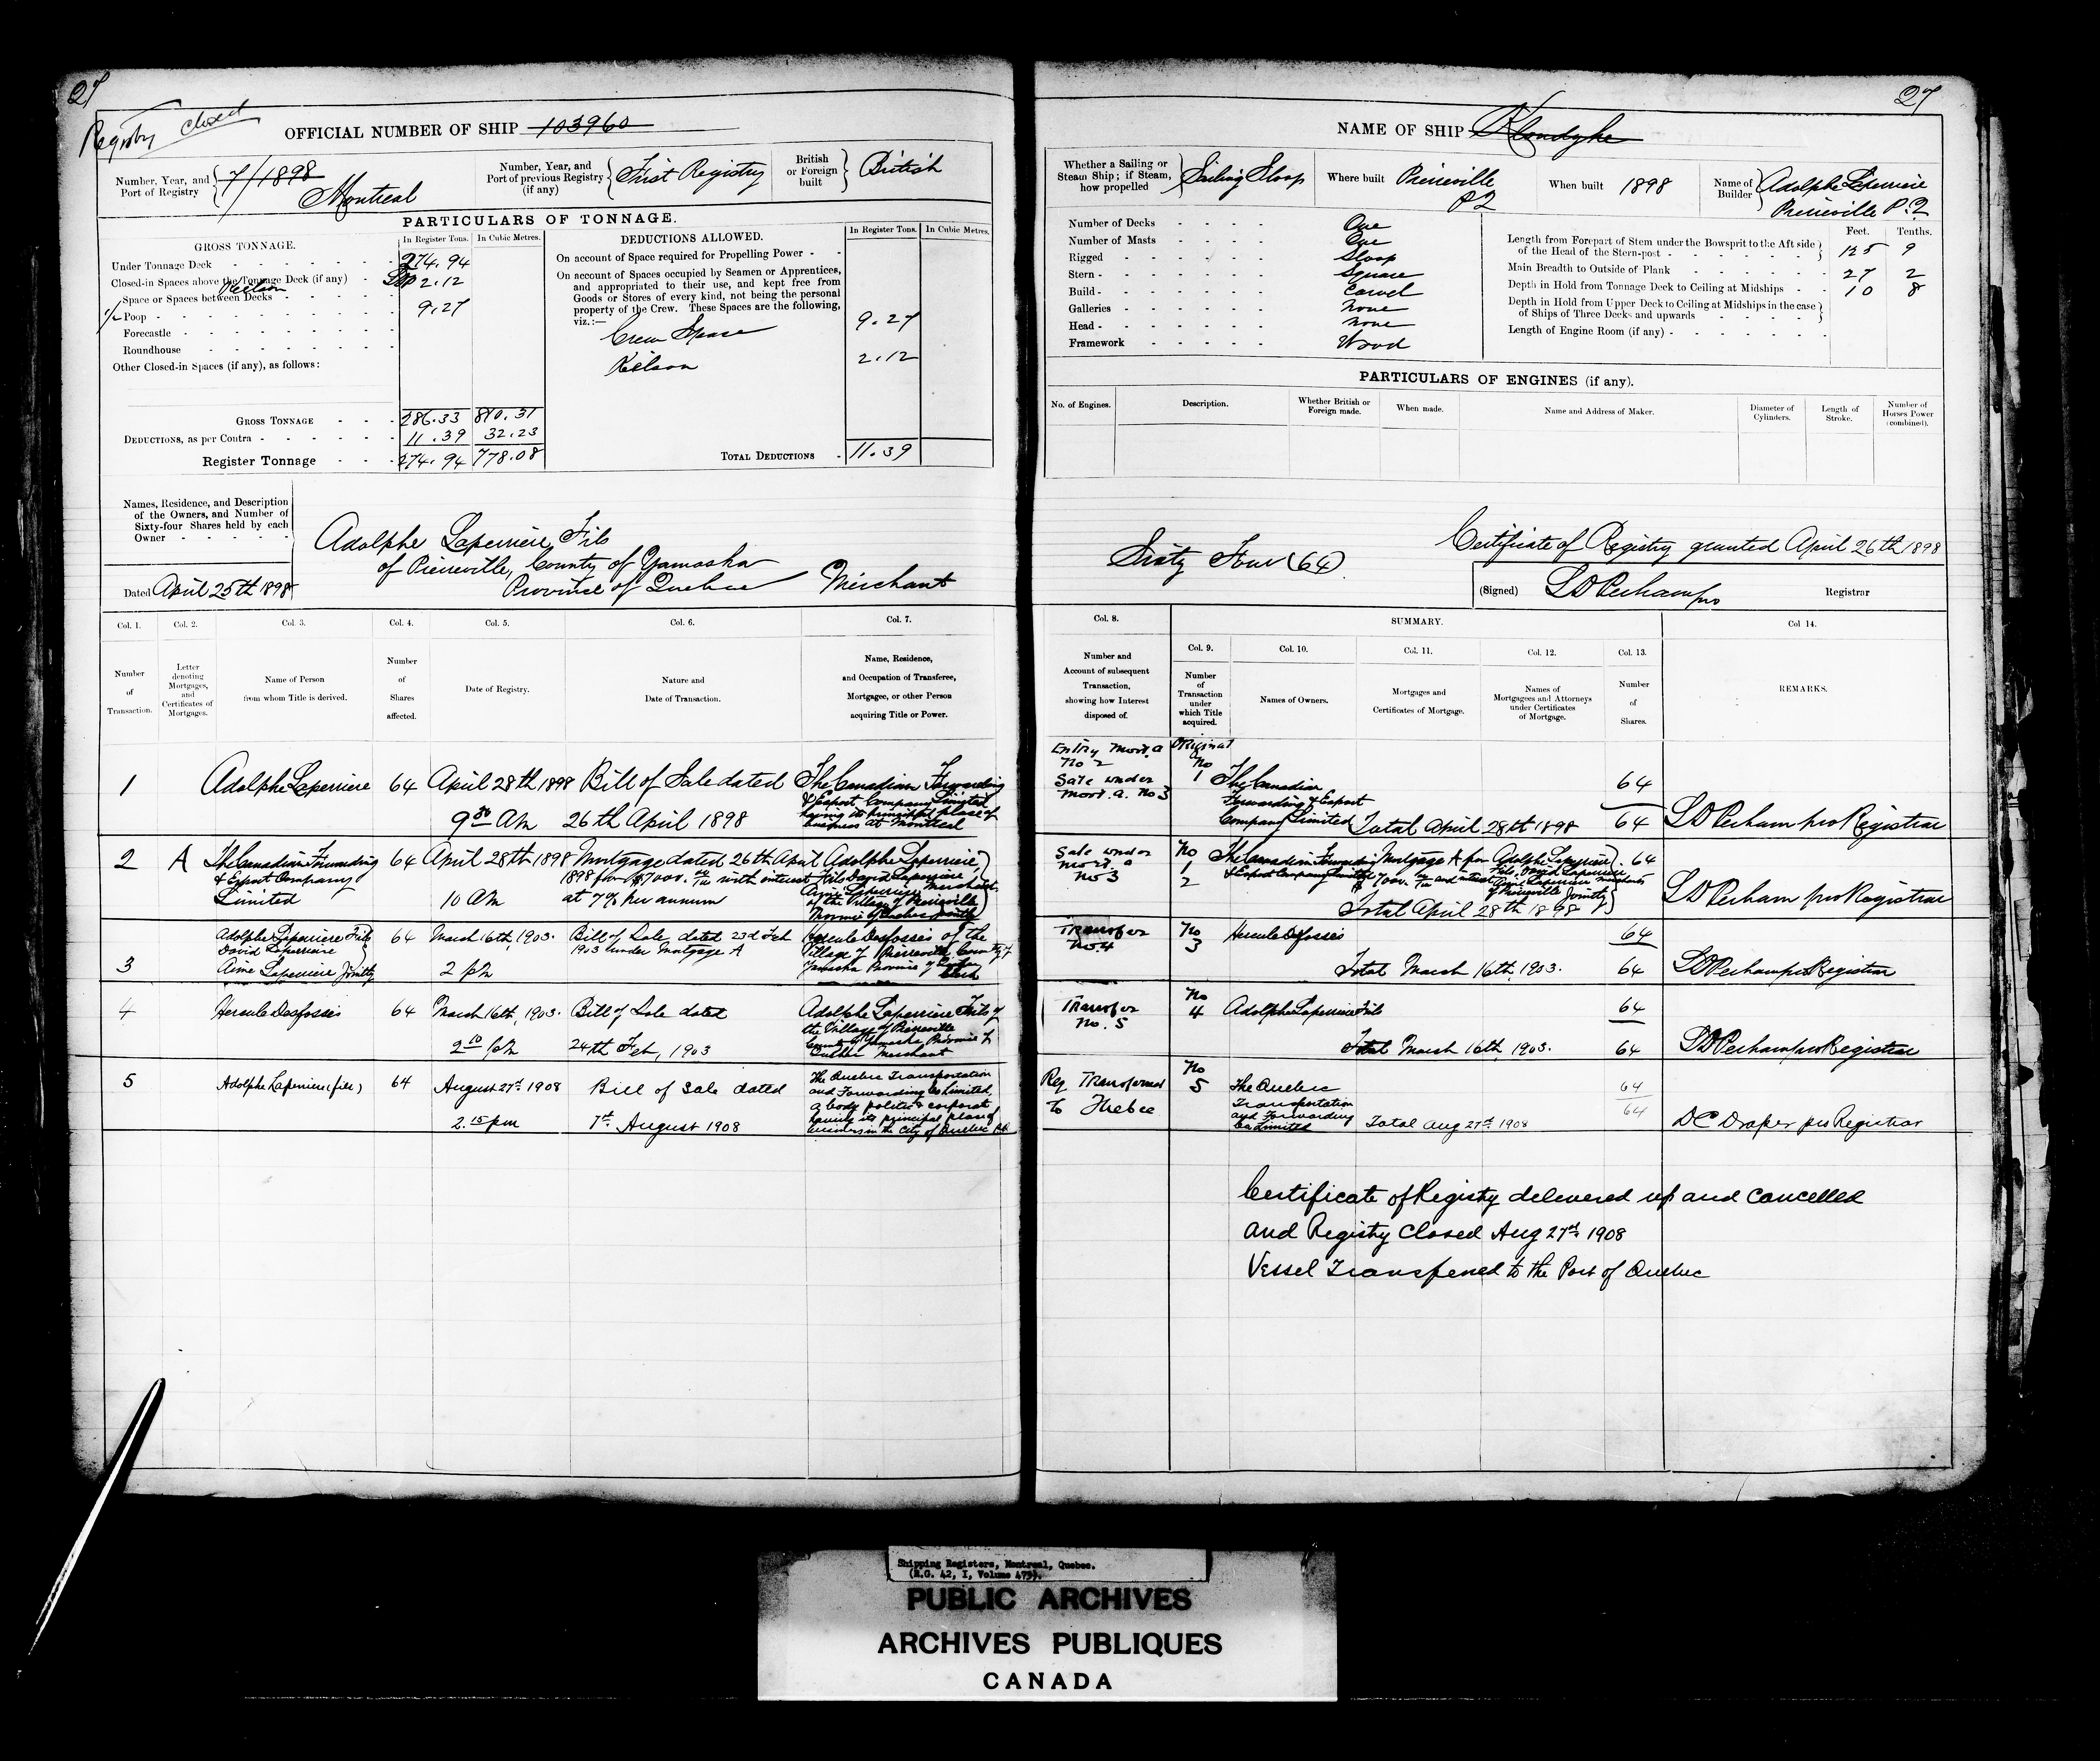 27
Registry closed
OFFICIAL NUMBER OF SHIP 103960
Number, Year, and Port of Registry 7/1898 Montreal
Number, Year, and Port of previous Registry (if any) First Registry
British or Foreign built British
PARTICULARS OF TONNAGE.
GROSS TONNAGE.
In Register Tons. In Cubic Metres.
Under Tonnage Deck 274.94
Closed-in Spaces above the Tonnage Deck (if any) 2.12
Keelson
Space or Spaces between Decks
Poop 9.27
Forecastle
Roundhouse
Other Closed-in Spaces (if any), as follows:
GROSS TONNAGE 286.33 810.31
DEDUCTIONS, as per Contra 11.39 32.23
Register Tonnage 274.94 778.08
DEDUCTIONS ALLOWED.
In Register Tons. In Cubic Metres.
On account of Space required for Propelling Power
On account of Spaces occupied by Seamen or Apprentices,
and appropriated to their use, and kept free from
Goods or Stores of every kind, not being the personal
property of the Crew. These Spaces are the following,
viz.:—
Crew Space 9.27
Kelson 2.12
TOTAL DEDUCTIONS 11.39
Names, Residence, and Description
of the Owners, and Number of
Sixty-four Shares held by each
Owner
Adolphe Laperriere Fils
of Pierreville, County of Yamaska
Province of Quebec Merchant
Dated April 25th 1898
Col. 1. Col. 2. Col. 3. Col. 4. Col. 5. Col. 6. Col. 7.
Number of Transaction.
Letter denoting Mortgages, and Certificates of Mortgages.
Name of Person from whom Title is derived.
Number of Shares affected.
Date of Registry.
Nature and Date of Transaction.
Name, Residence, and Occupation of Transferee, Mortgagee, or other Person acquiring Title or Power.
1 Adolphe Laperriere 64 April 28th 1898 Bill of Sale dated The Canadian Forwarding
& Export Company Limited
having its principal place of
9 30 AM 26th April 1898 business at Montreal
2 A The Canadian Forwarding 64 April 28th 1898 Mortgage dated 26th April Adolphe Laperriere,
& Export Company 1898 for $7000. with interest Fils David Laperriere,
Limited 10 AM at 7% per annum Aime Laperriere Merchants
of the Village of Pierreville
Province of Quebec Jointly
3 Adolphe Laperriere Fils 64 March 16th, 1903. Bill of Sale dated 23d Feb Hercule Desfosses of the
David Laperriere 1903 under Mortgage A Village of Pierreville County of
Aime Laperriere Jointly 2 pm Yamaska Province of Quebec
Clerk
4 Hercule Desfosses 64 March 16th, 1903. Bill of Sale dated Adolphe Laperriere Fils of
the Village of Pierreville
County of Yamaska Province of
2 10 pm 24th Feb, 1903 Quebec Merchant
5 Adolphe Laperriere (fils) 64 August 27th 1908 Bill of Sale dated The Quebec Transportation
and Forwarding Co Limited,
a body politic & corporate
having its principal place of
2.15 pm 7th August 1908 business in the City of Quebec P.Q.
27
NAME OF SHIP Klondyke
Whether a Sailing or Steam Ship; if Steam, how propelled Sailing Sloop
Where built Pierreville P2
When built 1898
Name of Builder Adolphe Laperriere Pierreville P.Q
Number of Decks One
Number of Masts One
Rigged Sloop
Stern Square
Build Carvel
Galleries None
Head None
Framework Wood
Feet. Tenths.
Length from Forepart of Stem under the Bowsprit to the Aft side
of the Head of the Stern-post 125 9
Main Breadth to Outside of Plank 27 2
Depth in Hold from Tonnage Deck to Ceiling at Midships 10 8
Depth in Hold from Upper Deck to Ceiling at Midships in the case
of Ships of Three Decks and upwards
Length of Engine Room (if any)
PARTICULARS OF ENGINES (if any).
No. of Engines. Description. Whether British or Foreign made. When made. Name and Address of Maker. Diameter of Cylinders. Length of Stroke. Number of Horses Power (combined).
Sixty Four (64)
Certificate of Registry granted April 26th 1898
(Signed) LD Perham pro Registrar
Col. 8. SUMMARY. Col 14.
Col. 9. Col. 10. Col. 11. Col. 12. Col. 13.
Number and Account of subsequent Transaction, showing how Interest disposed of.
Number of Transaction under which Title acquired.
Names of Owners.
Mortgages and Certificates of Mortgage.
Names of Mortgagees and Attorneys under Certificates of Mortgage.
Number of Shares.
REMARKS.
Entry Mort. A Original
No 2 No
Sale under 1 The Canadian 64
Mort. A. No 3 Forwarding & Export
Company Limited Total April 28th 1898 64 LD Perham pro Registrar
Sale under No The Canadian Forwarding Mortgage A for Adolphe Laperriere 64
Mort A 1 & Export Company Limited $7000. and interest Fils, David Laperriere
No 3 2 Aime Laperriere Merchants
of Pierreville Jointly
Total April 28th 1898 LD Perham pro Registrar
Transfer No Hercule Desfosses 64
No 4 3
Total March 16th, 1903. 64 LD Perham pro Registrar
Transfer No
No. 5 4 Adolphe Laperriere Fils 64
Total March 16th 1903. 64 LD Perham pro Registrar
Reg Transferred No
To Quebec 5 The Quebec 64
Transportation
and Forwarding
Co Limited Total Aug 27th 1908 64 DC Draper pro Registrar
Certificate of Registry delivered up and cancelled
and Registry Closed Aug 27th 1908
Vessel Transferred to the Port of Quebec
Shipping Registers, Montreal, Quebec.
(R.G. 42, I, Volume 475).
PUBLIC ARCHIVES
ARCHIVES PUBLIQUES
CANADA